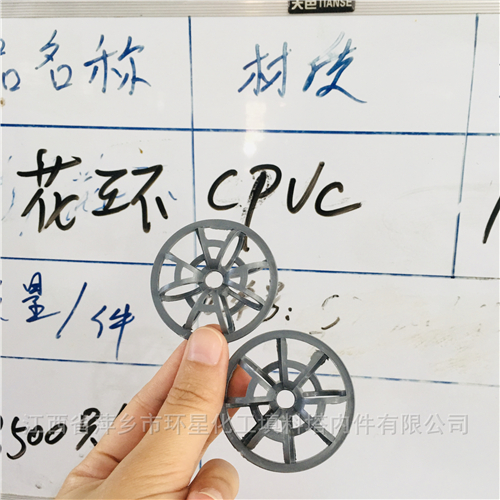 天色TIANSE
品名称 材质
花环 CPVC
量/件
500只/
江西省萍乡市环星化工填料塔内件有限公司